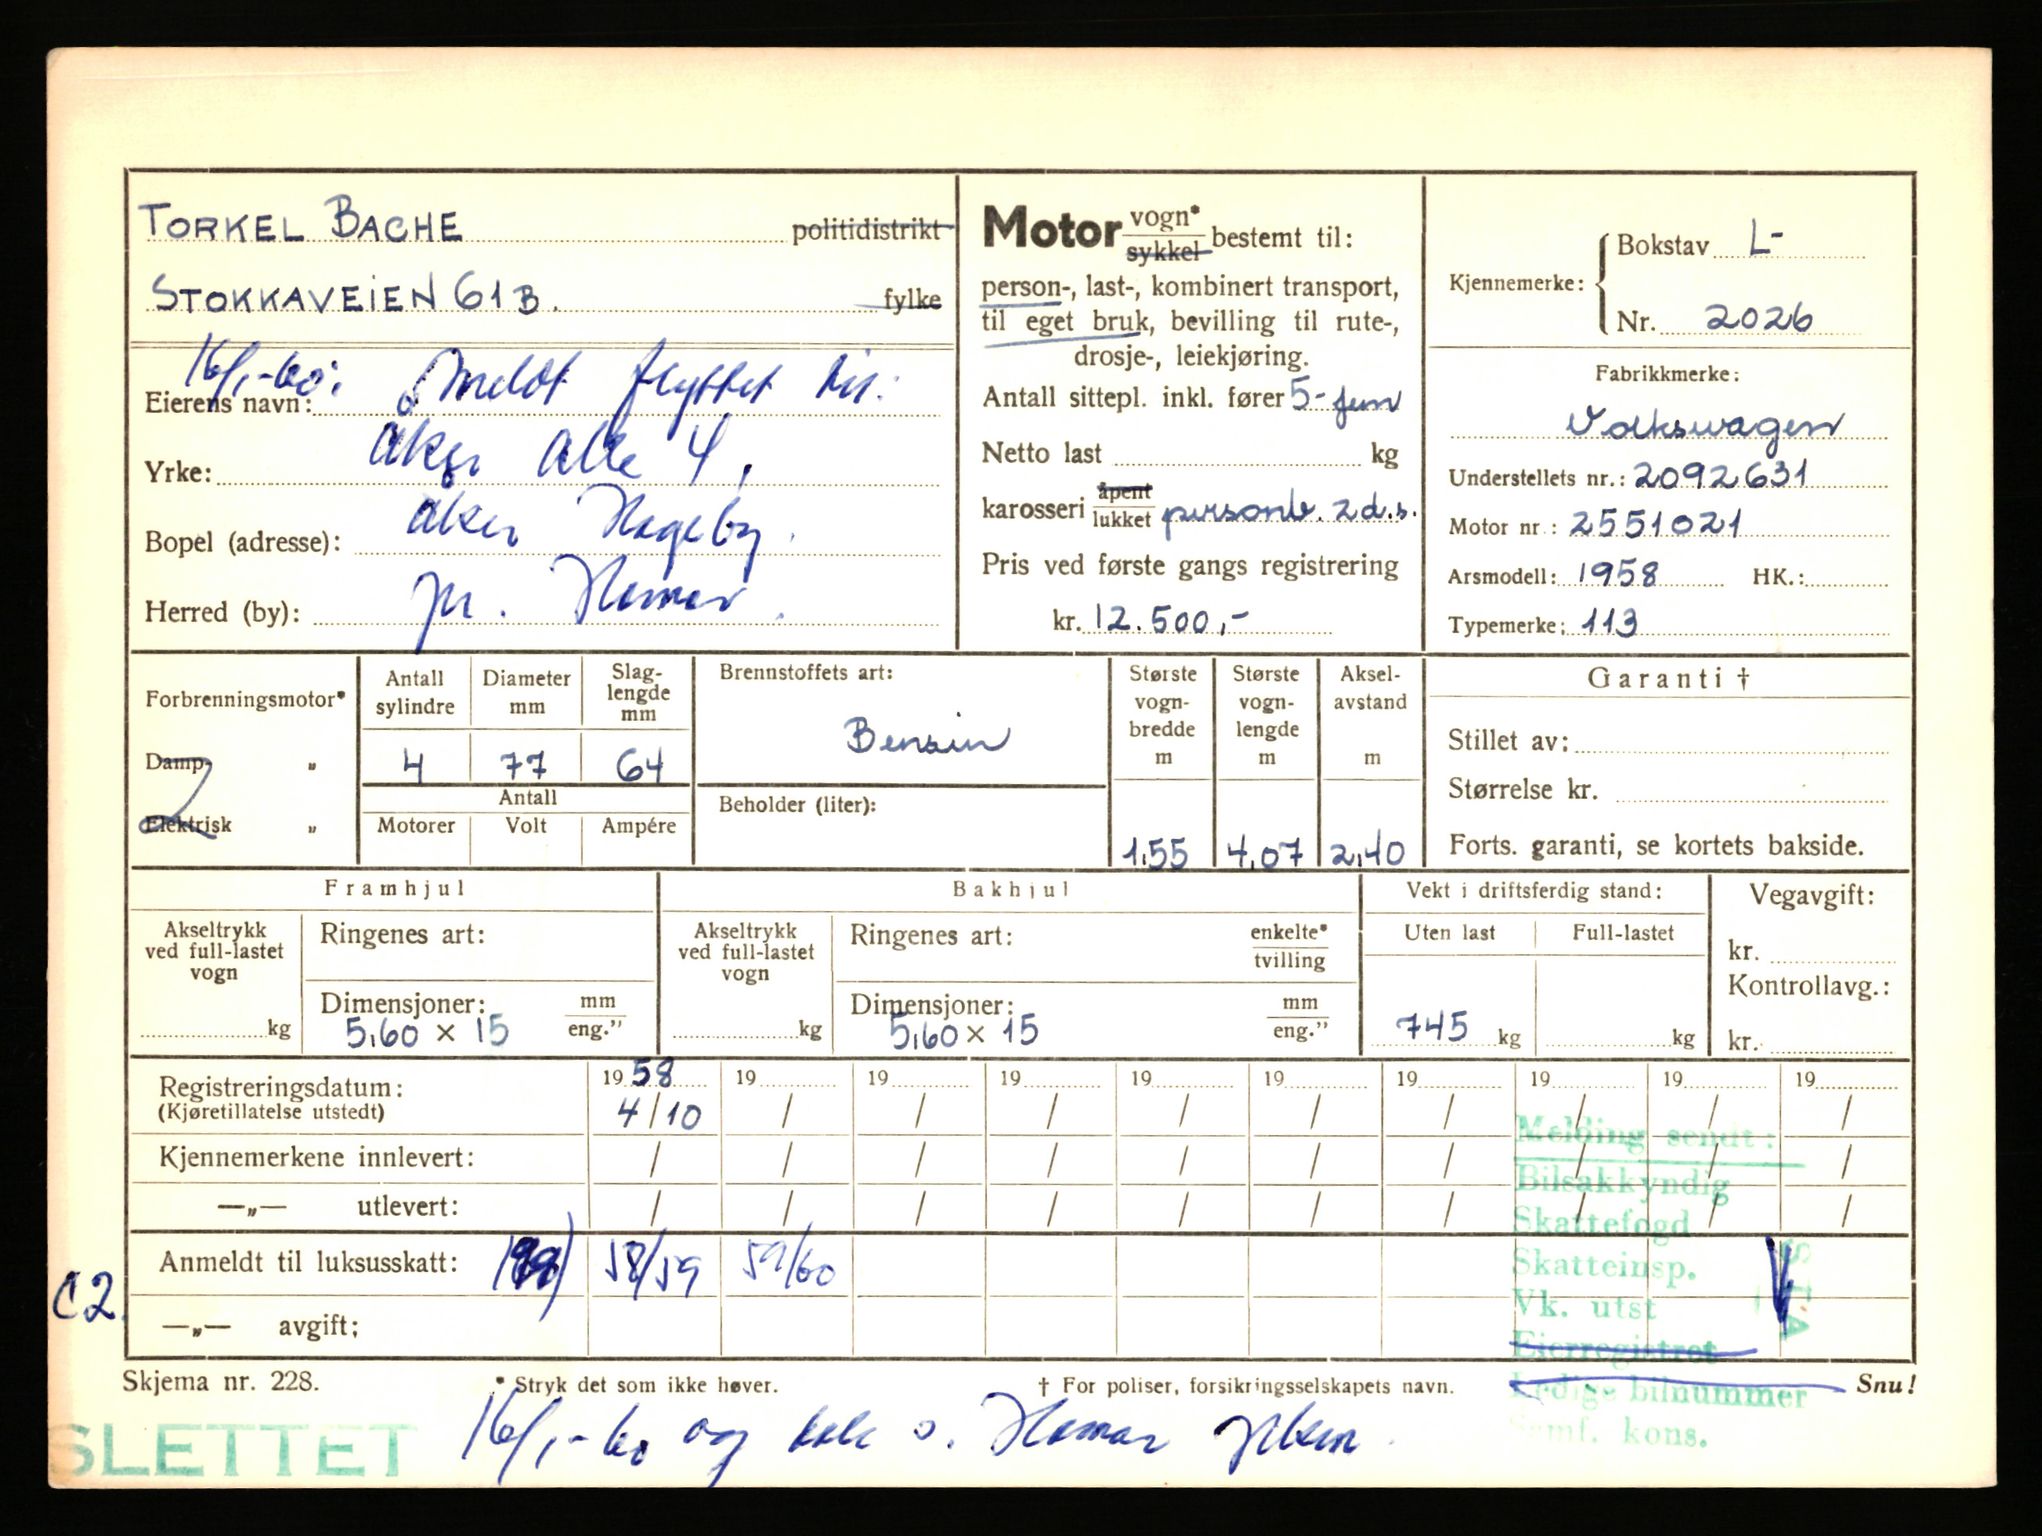 TORKEL BACHE politidistrikt
STOKKAVEIEN 61 B. fylke
16/1-60: Anmeldt flyttet til:
Eierens navn:
Aker Alle 4,
Yrke:
Aker Hageby.
Bopel (adresse):
pr. Hamar.
Herred (by):
Motor vogn* sykkel bestemt til:
person-, last-, kombinert transport,
til eget bruk, bevilling til rute-,
drosje-, leiekjøring.
Antall sittepl. inkl. fører 5-fem
Netto last kg
karosseri åpent lukket personb. 2d.s.
Pris ved første gangs registrering
kr. 12.500,-
Kjennemerke: Bokstav L-
Nr. 2026
Fabrikkmerke:
Volkswagen
Understellets nr.: 2092631
Motor nr.: 2551021
Arsmodell: 1958 HK.:
Typemerke: 113
Forbrenningsmotor*
Damp- „
Elektrisk „
Antall sylindre Diameter mm Slag-lengde mm
4 77 64
Antall
Motorer Volt Ampére
Brennstoffets art:
Bensin
Beholder (liter):
Største vogn-bredde m Største vogn-lengde m Aksel-avstand m
1,55 4,07 2,40
Garanti †
Stillet av:
Størrelse kr.
Forts. garanti, se kortets bakside.
Framhjul Bakhjul Vekt i driftsferdig stand: Vegavgift:
Akseltrykk ved full-lastet vogn kg
Ringenes art:
Dimensjoner: mm eng.”
5,60 x 15
Akseltrykk ved full-lastet vogn kg
Ringenes art: enkelte* tvilling
Dimensjoner: mm eng.”
5,60 x 15
Uten last Full-lastet
745 kg kg
kr.
Kontrollavg.:
kr.
Registreringsdatum: 19 58 19 19 19 19 19 19 19 19 19
(Kjøretillatelse utstedt) 4/10 / / / / / / / / /
Kjennemerkene innlevert: / / / / / / / / / /
—„— utlevert: / / / / / / / / / /
Anmeldt til luksusskatt: 58/59 59/60
C2.
—„— avgift:
Melding sendt:
Bilsakkyndig
Skattefogd
Skatteinsp.
Vk. utst
Eierregistret
Ledige bilnummer
Semf. kons.
Skjema nr. 228. * Stryk det som ikke høver. † For poliser, forsikringsselskapets navn. Snu!
SLETTET
16/1-60 og Hamar